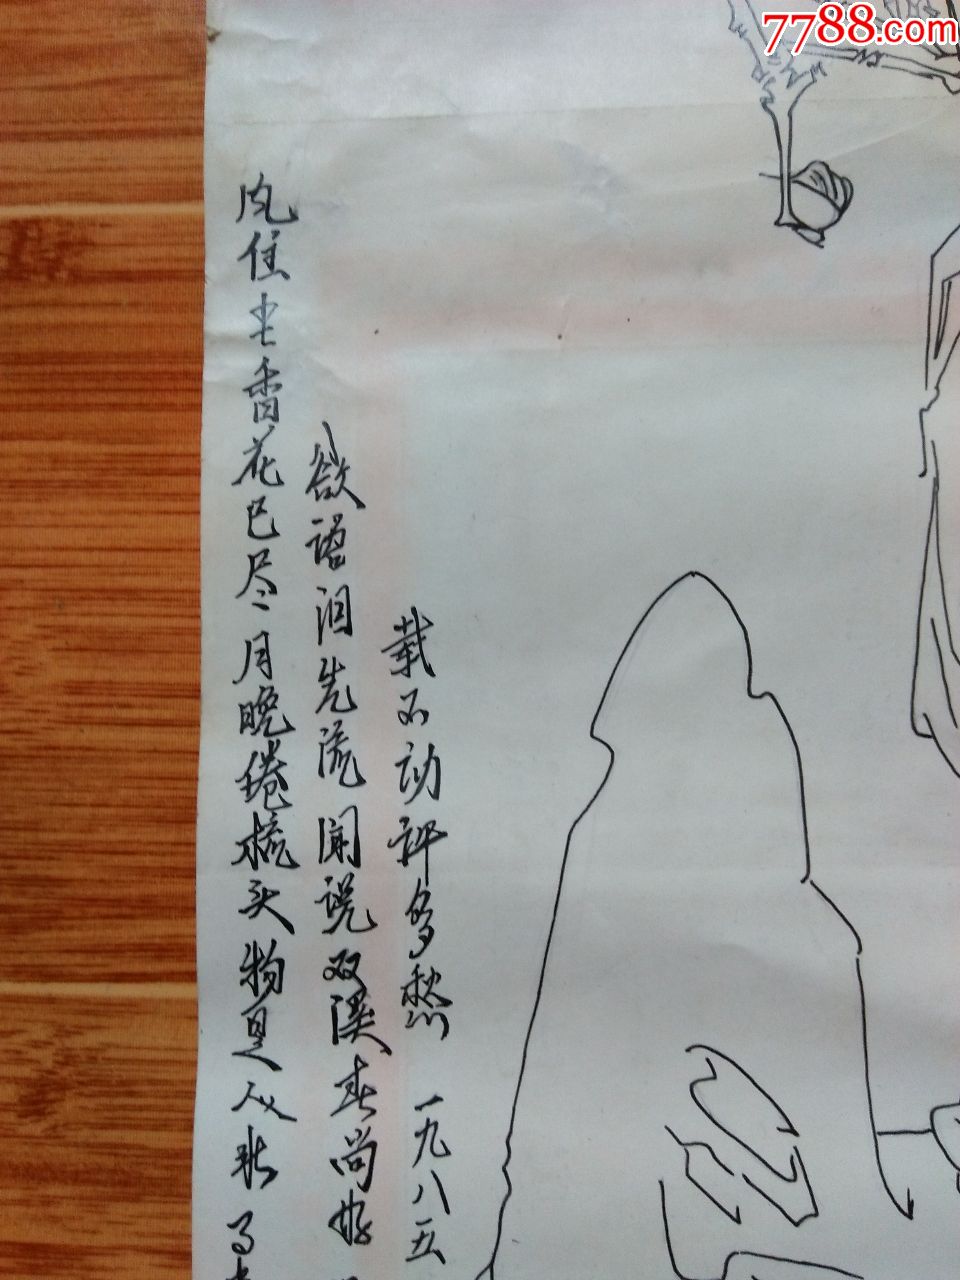 7788.com
风住尘香花已尽月晚倦梳头物是人非
欲语泪先流闻说双溪春尚好
载不动许多愁 一九八五